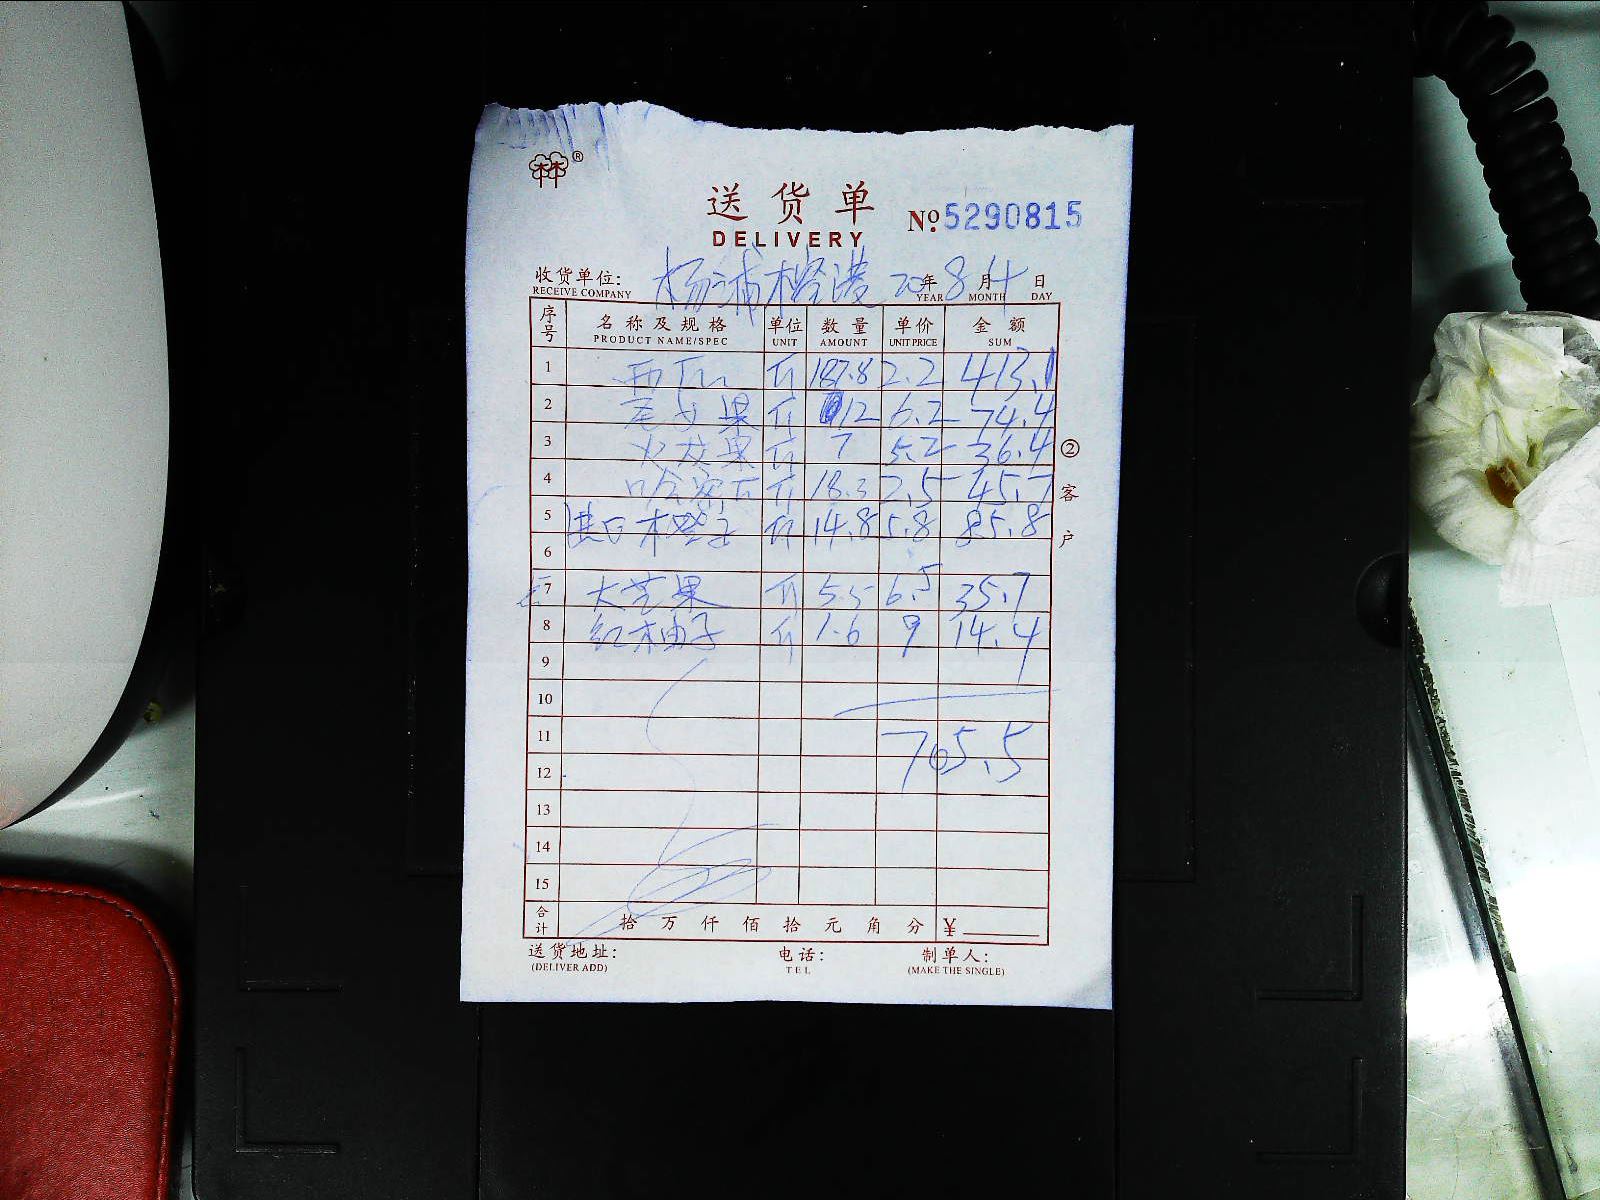 林®
送货单
DELIVERY
No. 5290815
收货单位: 杨浦 20年8月4日
RECEIVE COMPANY YEAR MONTH DAY
序号 名称及规格 单位 数量 单价 金额
PRODUCT NAME/SPEC UNIT AMOUNT UNIT PRICE SUM
1 西瓜 斤 187.8 2.2 413.1
2 果 斤 12 6.2 74.4
3 火龙果 斤 7 5.2 36.4
4 哈密瓜 斤 18.3 2.5 45.7
5 进口橙子 斤 14.8 5.8 85.8
6
7 大芒果 斤 5.5 6.5 35.7
8 红柚子 斤 1.6 9 14.4
9
10
11 765.5
12
13
14
15
合计 拾万仟佰拾元角分 ¥
送货地址: 电话: 制单人:
(DELIVER ADD) TEL (MAKE THE SINGLE)
②客户